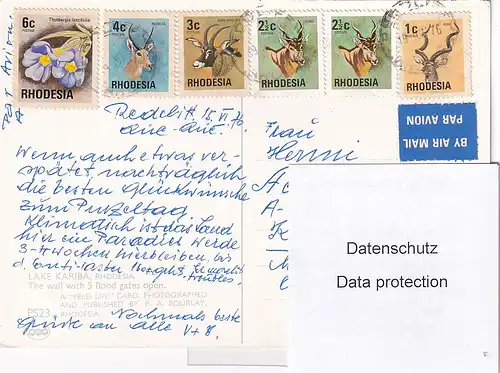 6c
Thunbergia lancifolia
RHODESIA
4c
RHODESIA
3c
RHODESIA
2½c
RHODESIA
2½c
RHODESIA
1c
RHODESIA
Par Avion
A
BY AIR MAIL
PAR AVION
15. VI. 76
Que-Que.
Wenn auch etwas ver-
spätet, nachträglich
die besten Glückwünsche
zum Purzeltag
Klimatisch ist das Land
hier ein Paradies werde
3-4 Wochen hierbleiben bis
LAKE KARIBA, RHODESIA
The wall with 5 flood gates open.
A "FIELD LIFE" CARD. PHOTOGRAPHED
AND PUBLISHED BY R. A. BOURLAY,
PS23 RHODESIA
Nochmals beste
Grüße an alle V+B.
Frau
Henni
A-
Datenschutz
Data protection